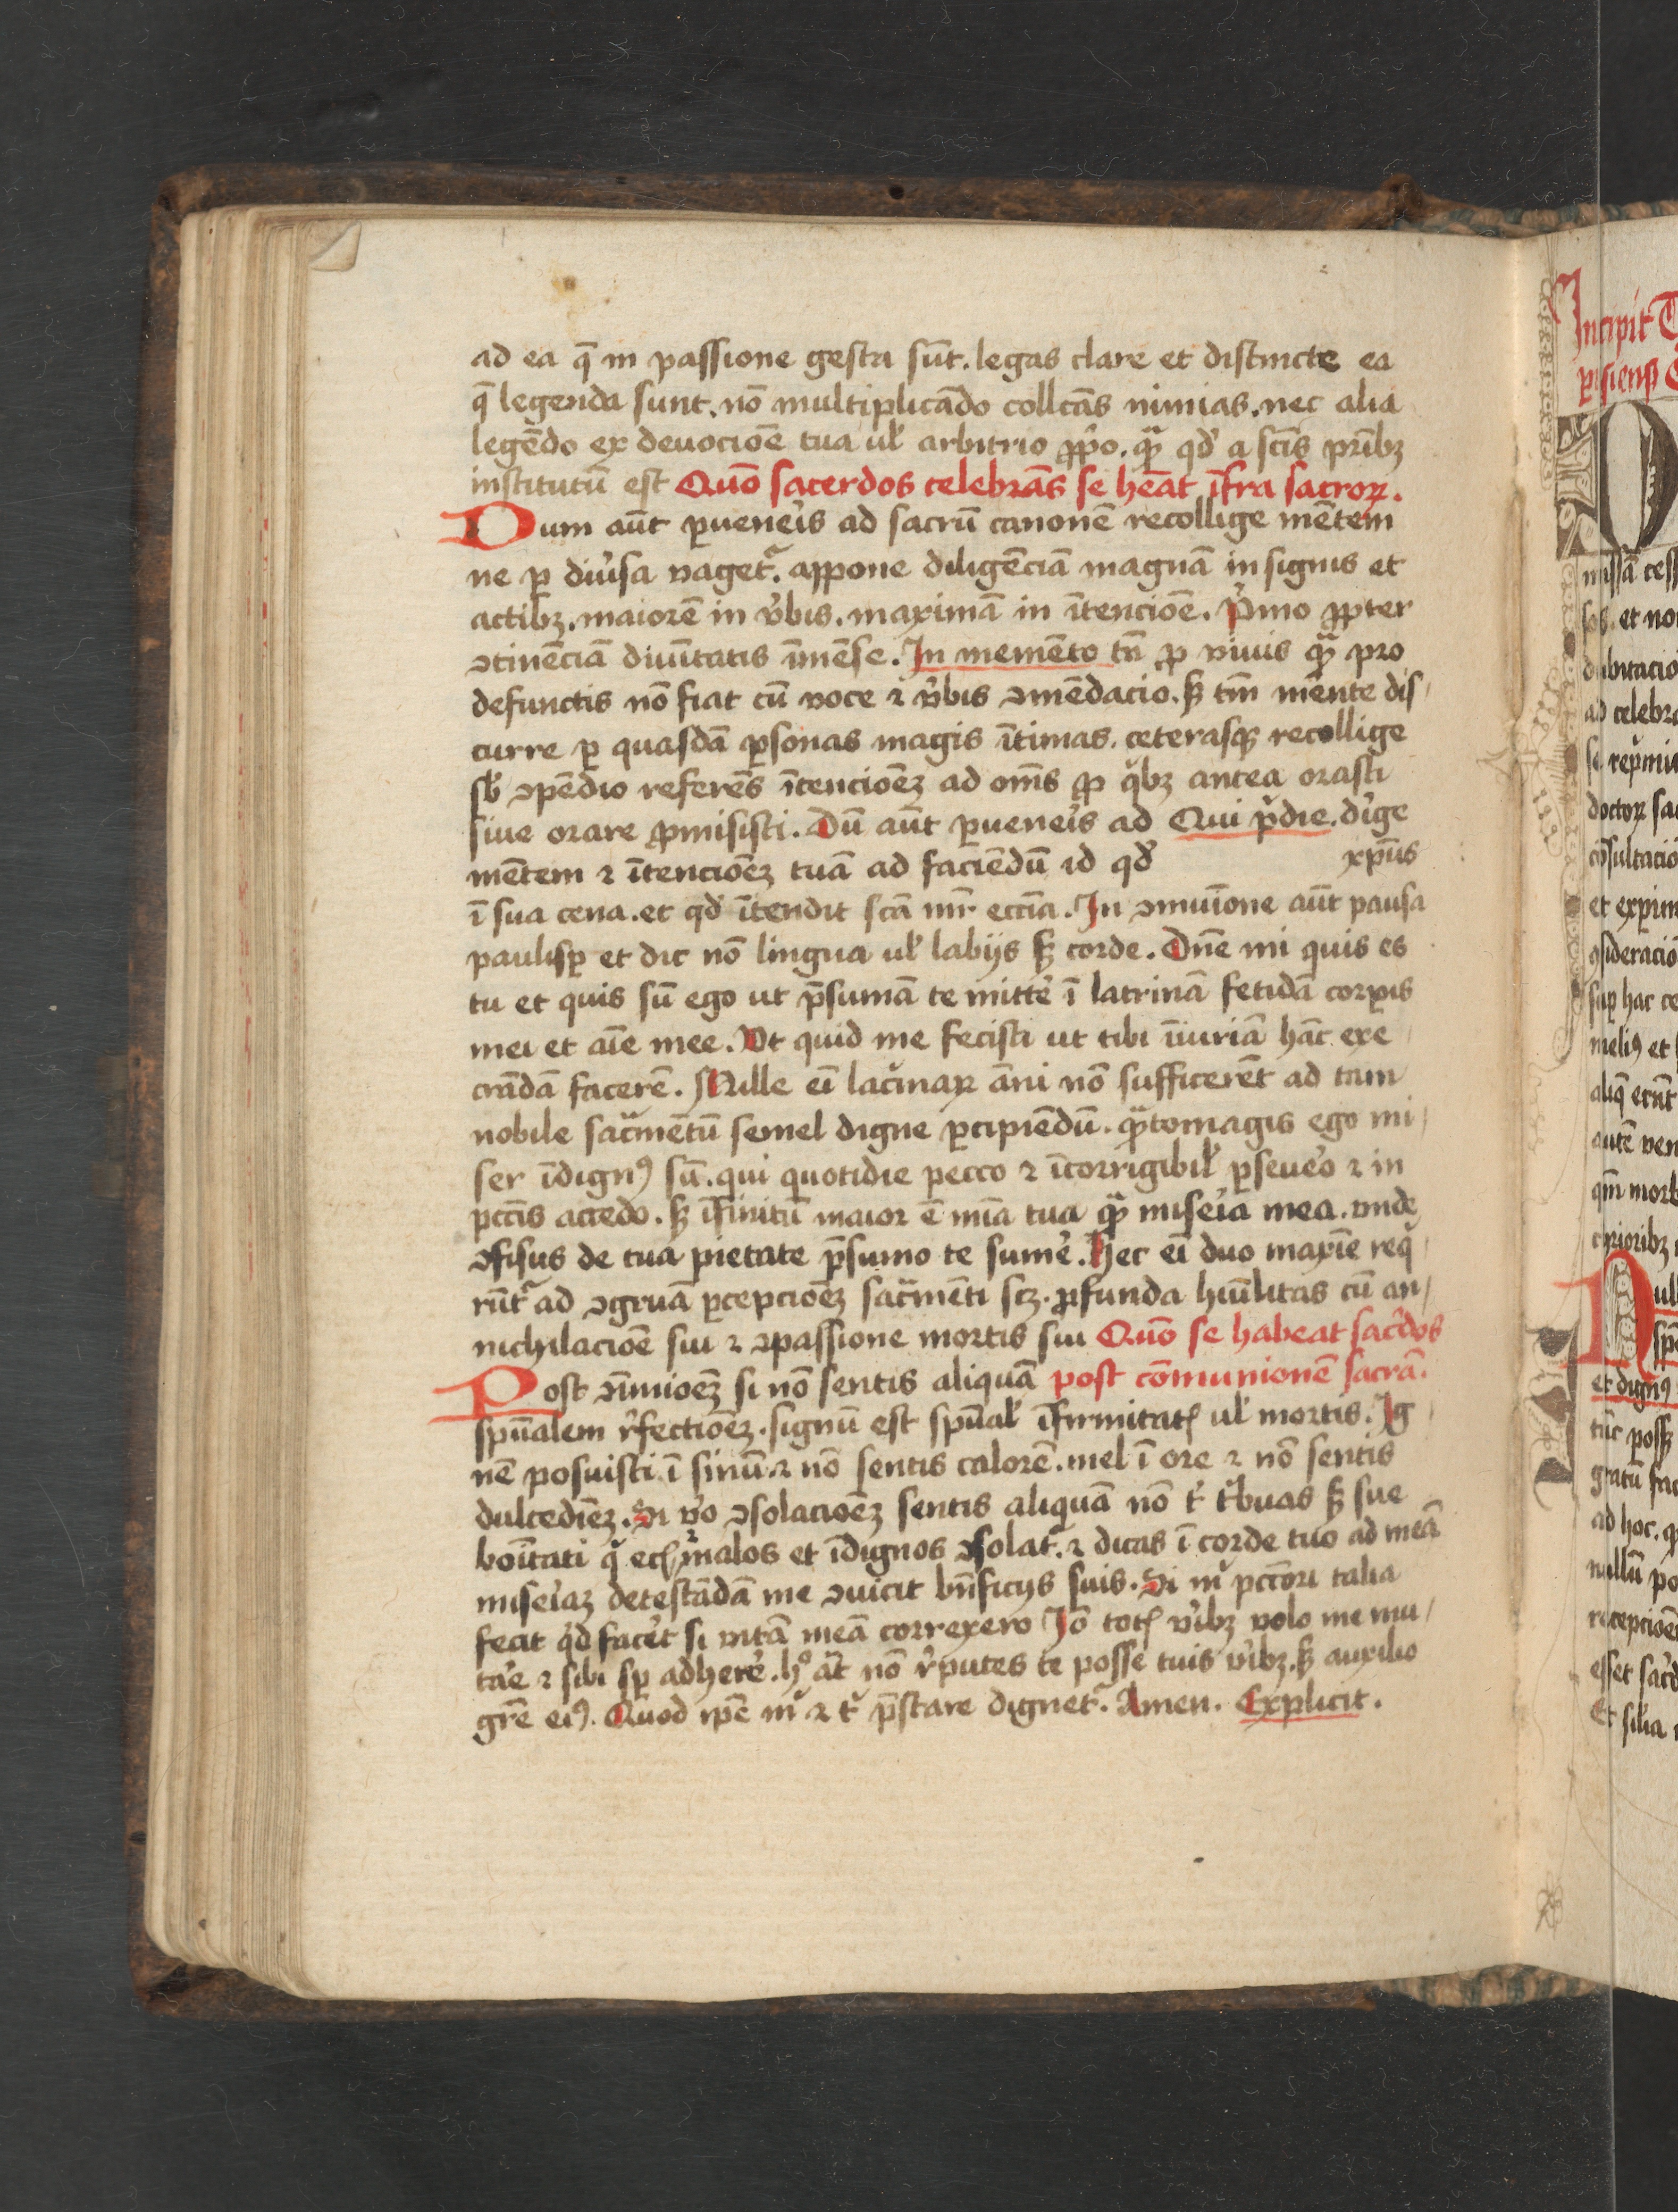 ad ea q̄ in passione gesta sūt. legas clare et distincte ea
q̄ legenda sunt. nō multiplicādo collcās nimias. nec alia
legēdo ex deuocioē tua ul' arbitrio ꝓpo. qͣ̄ qd' a sctīs pr̄ibꝫ
institutū est Quō sacerdos celebrās se heāt īfra sacroꝝ.
Dum aūt ꝑuene͛is ad sacrū canonē recollige mētem
ne ꝑ diu͛sa vaget᷑. appone diligēciā magnā in signis et
actibꝫ. maiorē in v͛bis. maximā in ītencioē. P͛mo ꝓpter
ↄtinēciā diuītatis īmēse. In memēto tn̄ ꝓ viuis qͣ̄ pro
defunctis nō fiat cū voce ⁊ v͛bis ↄmēdacio. sꝫ tm̄ mēnte dis
curre ꝑ quasdā ꝑsonas magis ītimas. ceterasqꝫ recollige
sb' ↄpēdio referēs ītencioēꝫ ad om̄s ꝓ qͥbꝫ antea orasti
siue orare ꝓmisisti. Dū aūt ꝑuene͛is ad Qui p͛die. di͛ge
mētem ⁊ ītencioēꝫ tuā ad faciēdū id qd' xp̄us
ī sua cena. et qd' ītendit sctā mr̄ ecciā. In ↄmuīone aūt pausa
paulisꝑ et dic nō lingua ul' labijs sꝫ corde. Dn̄e mi quis es
tu et quis sū ego ut p̄sumā te mitte͛ ī latrinā fetidā corꝑis
mei et aīe mee. Vt quid me fecisti ut tibi īiuriā hāc exe
crādā facerē. Mille eī lac͛maꝝ āni nō sufficerēt ad tam
nobile sac̄mētū semel digne ꝑcipiēdū. qͣ̄tomagis ego mi
ser īdignꝰ sū. qui quotidie pecco ⁊ īcorrigibil' ꝑseue͛o ⁊ in
pcc̄is accedo. sꝫ īfinitū maior ē mīa tua qͣ̄ mise͛ia mea. vnde
ↄfisus de tua pietate p̄sumo te sume͛. Hec eī duo maxīe req
rūt᷑ ad ↄgruā ꝑcepcioēꝫ sac̄mēti scꝫ. ꝓfunda hūilitas cū an
nichilacioē sui ⁊ ↄpassione mortis sui Quō se habeat sac͛dos
Post ↄm̄uioēꝫ si nō sentis aliquā post cōmunionē sacrā.
spūalem r͛fectioēꝫ. signū est spūal' īfirmitatꝭ ul' mortis. Ig
nē posuisti ī sinū ⁊ nō sentis calorē. mel ī ore ⁊ nō sentis
dulcediēꝫ. Si v͛o ↄsolacioēꝫ sentis aliquā nō tͥ t͛buas sꝫ sue
boītati qͥ ecꝭ malos et īdignos ↄsolat᷑. ⁊ dicas ī corde tuo ad mtā
mise͛iaꝫ detestādā me ↄuicit bn̄ficijs suis. Si mͥ pcc̄ori talia
fecit qͥd face͛t si vitā meā correxero Iō totꝭ vi͛bꝫ volo me mu
ta͛e ⁊ sibi sꝑ adhere͛. hͦ aūt nō r͛putes te posse tuis vi͛bꝫ. sꝫ auxilio
gr̄e eiꝰ. Quod ip̄e mͥ ⁊ tͥ p̄stare dignet᷑. Amen. Explicit.